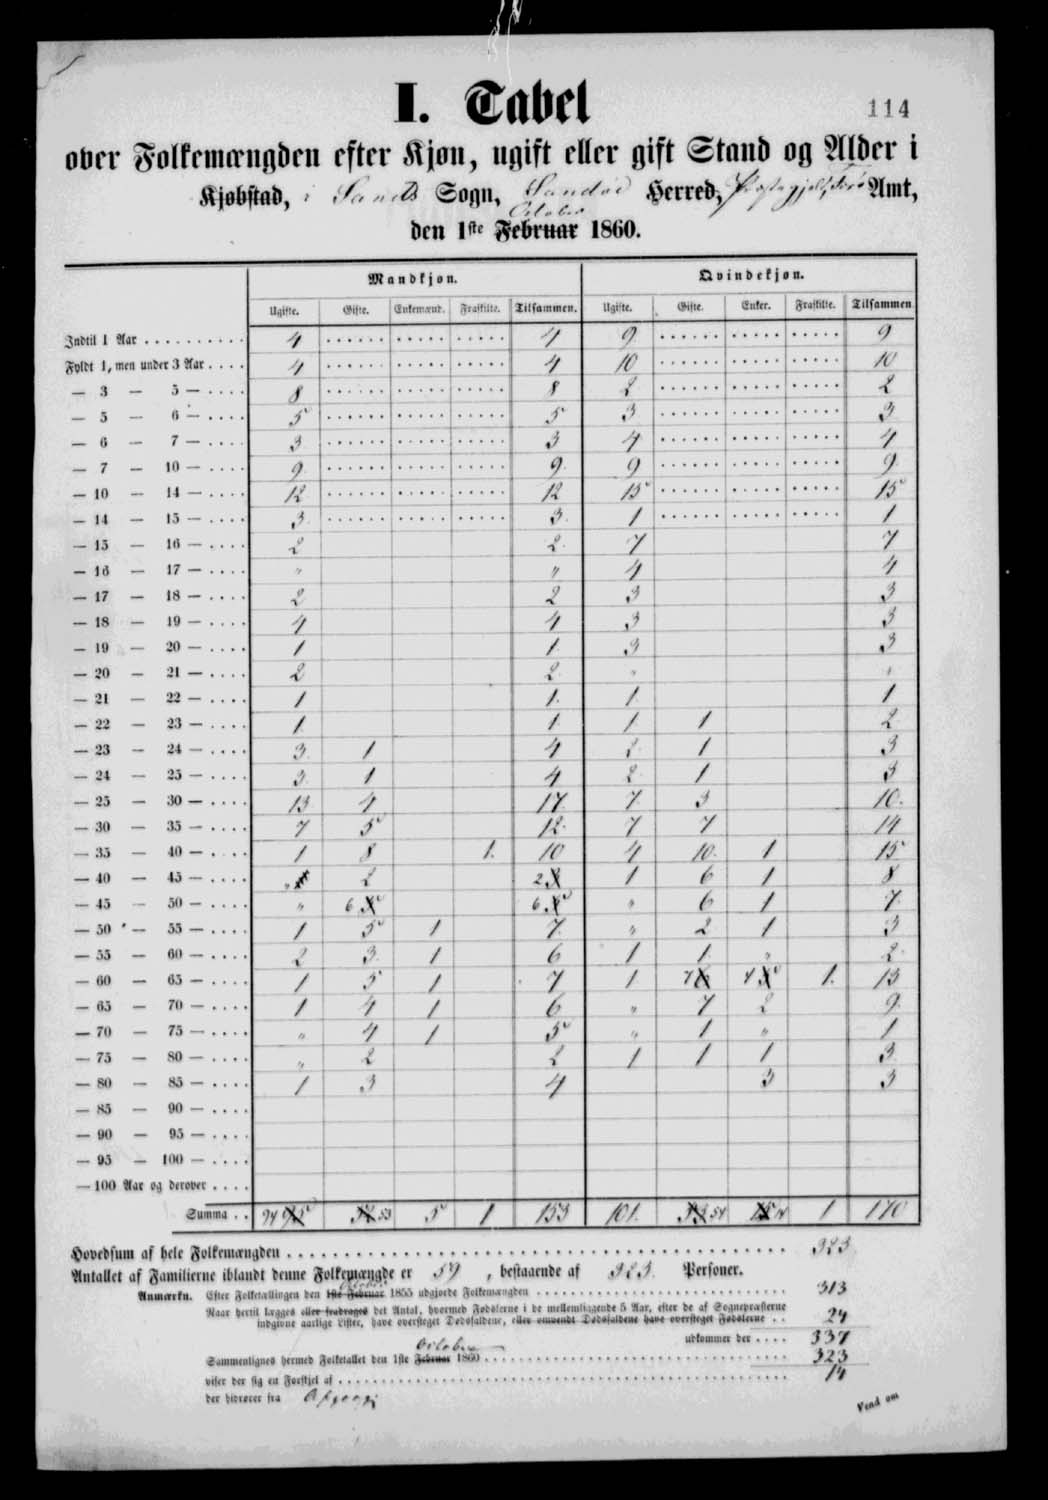 114
I. Tabel
over Folkemængden efter Kjøn, ugift eller gift Stand og Alder i
Kjøbstad, i Sands Sogn, Sandøe Herred, Præstegjeld, Færø Amt,
October
den 1ste Februar 1860.
Mandkjøn. Qvindekjøn.
Ugifte. Gifte. Enkemænd. Fraskilte. Tilsammen. Ugifte. Gifte. Enker. Fraskilte. Tilsammen.
Indtil 1 Aar 4 4 9 9
Fyldt 1, men under 3 Aar 4 4 10 10
— 3 — 5 — 8 8 2 2
— 5 — 6 — 5 5 3 3
— 6 — 7 — 3 3 4 4
— 7 — 10 — 9. 9. 9 9.
— 10 — 14 — 12 12 15 15
— 14 — 15 — 3. 3. 1 1
— 15 — 16 — 2 2. 7 7
— 16 — 17 — " " 4 4
— 17 — 18 — 2 2 3 3
— 18 — 19 — 4 4 3 3
— 19 — 20 — 1 1. 3 3
— 20 — 21 — 2 2. " "
— 21 — 22 — 1 1. 1. 1
— 22 — 23 — 1. 1. 1 1 2
— 23 — 24 — 3. 1 4 2. 1 3
— 24 — 25 — 3. 1 4 2. 1 3
— 25 — 30 — 13. 4 17. 7. 3 10.
— 30 — 35 — 7 5 12. 7 7 14
— 35 — 40 — 1 8 1. 10 4 10. 1 15
— 40 — 45 — " 2 2 1 6 1 8
— 45 — 50 — " 6 6 " 6 1 7.
— 50 — 55 — 1 5 1 7. " 2 1 3
— 55 — 60 — 2 3. 1 6 1 1. " 2.
— 60 — 65 — 1 5 1 7 1 7 4 1. 13
— 65 — 70 — 1 4 1 6 " 7 2 9.
— 70 — 75 — " 4 1 5 " 1 " 1
— 75 — 80 — " 2 2 1 1 1 3
— 80 — 85 — 1 3 4 3 3
— 85 — 90 —
— 90 — 95 —
— 95 — 100 —
— 100 Aar og derover
Summa 94 95 52 53 5 1 153 101. 53 54 15 14 1 170
Hovedsum af hele Folkemængden 323
Antallet af Familierne iblandt denne Folkemængde er 59, bestaaende af 323. Personer.
October
Anmærkn. Efter Folketællingen den 1ste Februar 1855 udgjorde Folkemængden 313
Naar hertil lægges eller fradrages det Antal, hvormed Fødslerne i de mellemliggende 5 Aar, efter de af Sognepræsterne
indgivne aarlige Lister, have oversteget Dødsfaldene, eller omvendt Dødsfaldene have oversteget Fødslerne 24
udkommer der 337
October
Sammenlignes hermed Folketallet den 1ste Februar 1860 323
viser der sig en Forskjel af 14
der hidrører fra Afgang
Vend om